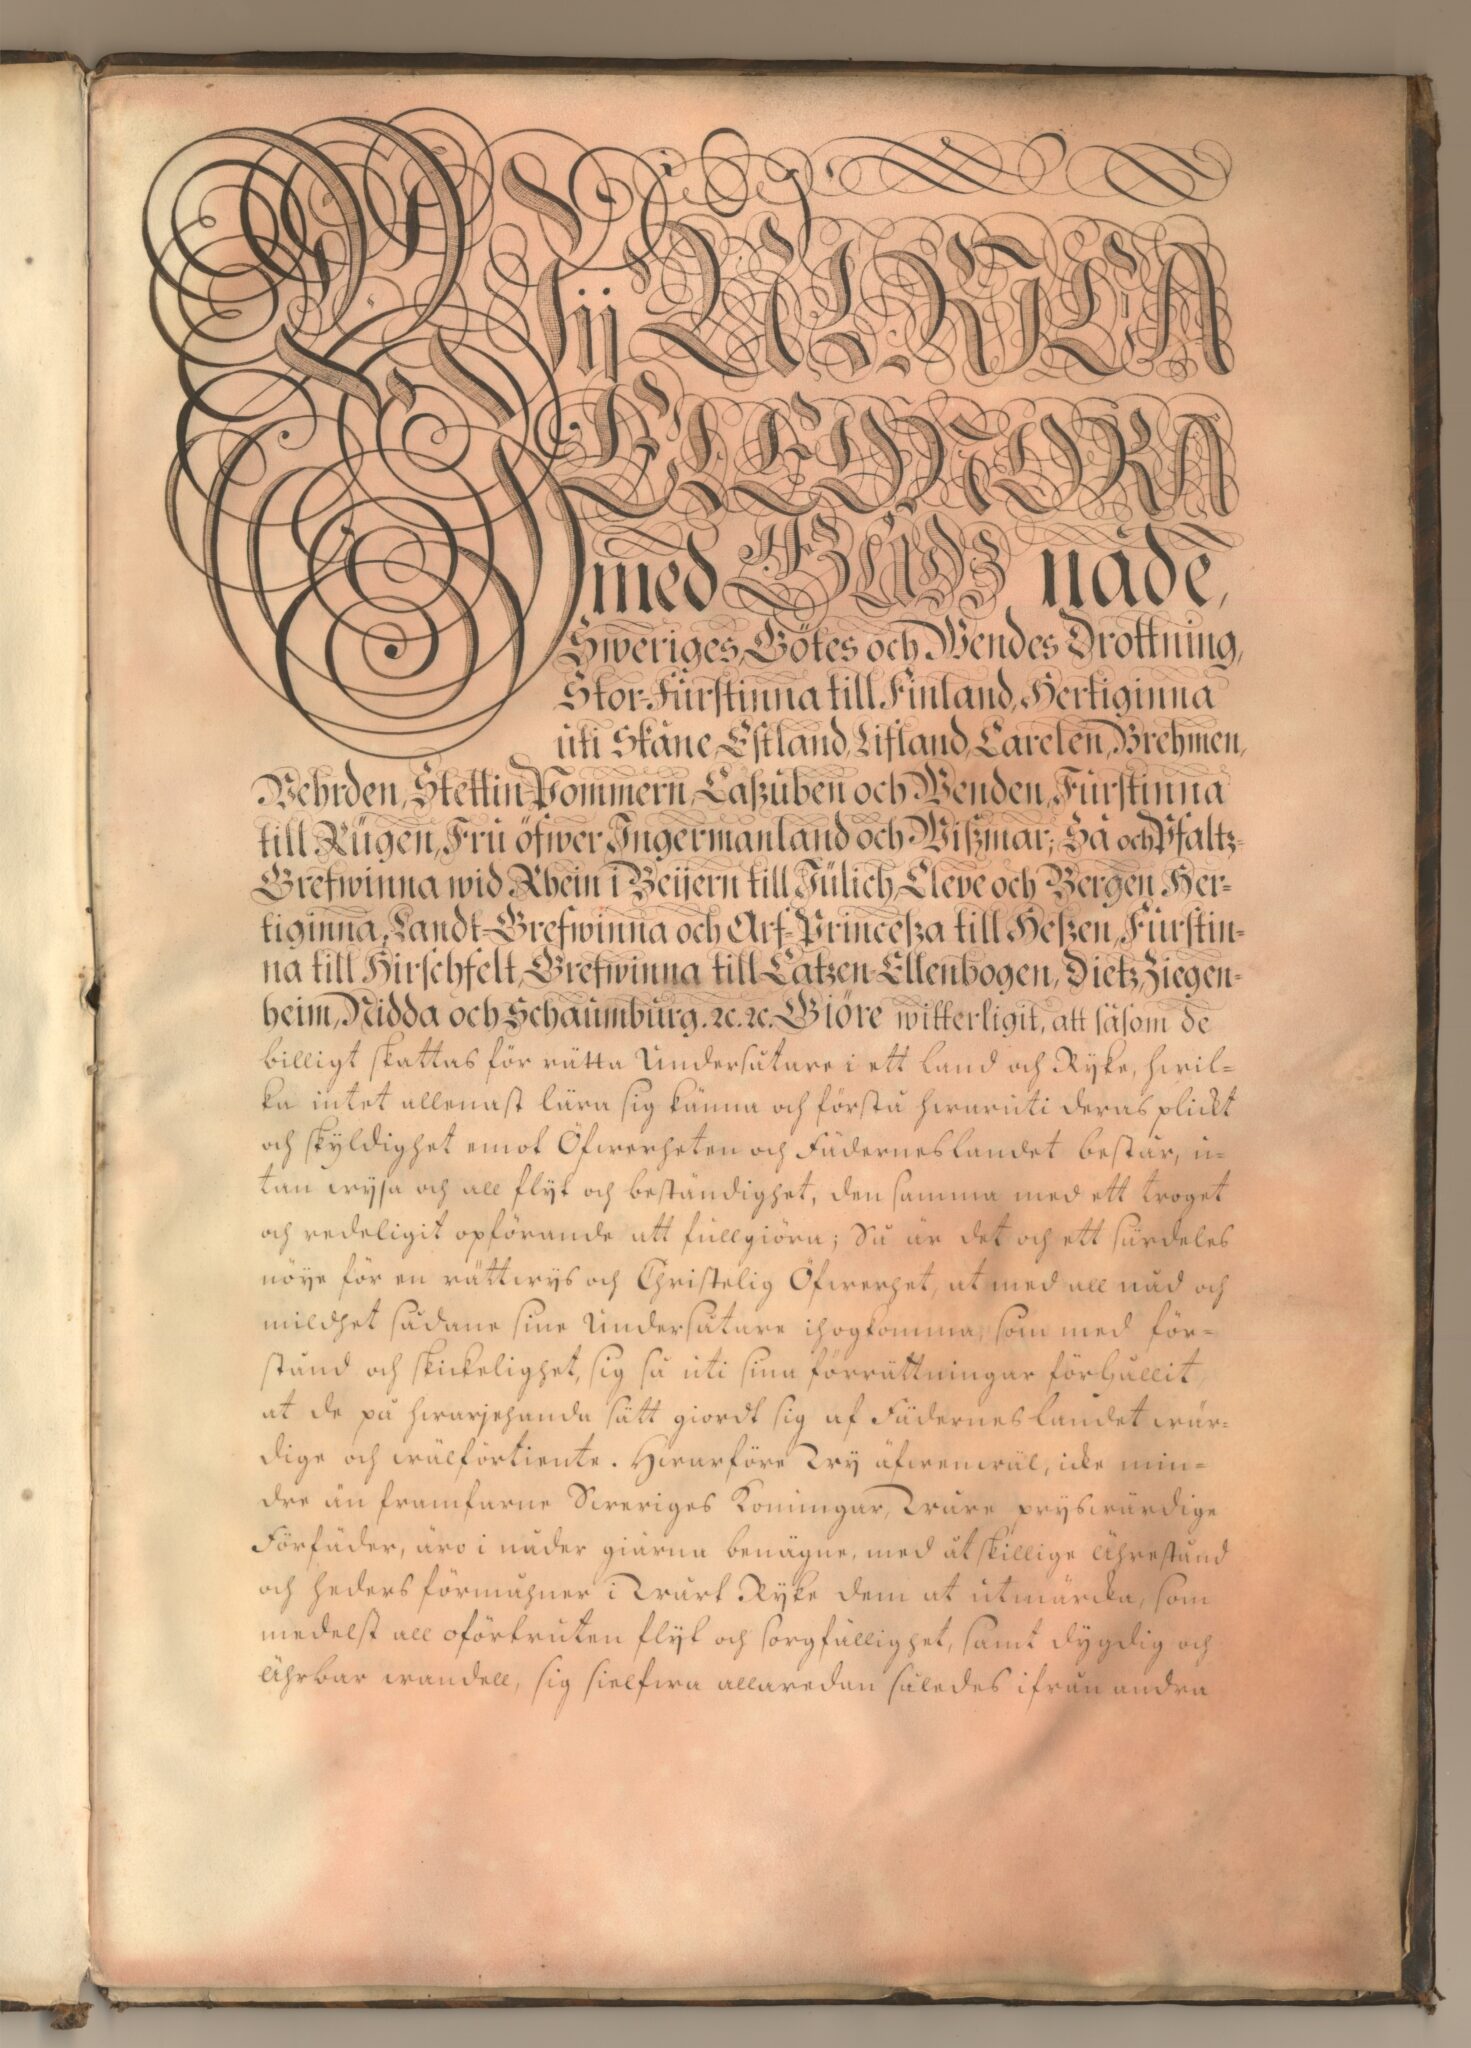 Wij ULRICA
ELEONORA
med GUDZ nåde,
Sweriges, Götes och Wendes Drottning,
Stor-Fürstinna till Finland, Hertiginna
uti Skåne, Estland, Lifland, Carelen, Brehmen,
Vehrden, Stettin-Pommern, Caszuben och Wenden, Fürstinna
till Rügen, Fru öfwer Ingermanland och Wiszmar; Så och Pfaltz-
Grefwinna wid Rhein i Beijern till Jülich, Cleve och Bergen Her-
tiginna, Landt-Grefwinna och Arf-Princesza till Heszen, Fürstin-
na till Hirschfelt, Grefwinna till Catzen-Ellenbogen, Dietz, Ziegen-
heim, Nidda och Schaumburg. ꝛc. ꝛc. Giöre witterligit, att såsom de
billigt skattas för rätta Undersåtare i ett Land och Ryke, hwil-
ka intet allenast lära sig känna och förstå hwaruti deras plickt
och skyldighet emot Öfwerheten och Fäderneslandet består, u-
tan wysa och all flyt och beständighet, den samma med ett troget
och redeligit opförande att fullgiöra; Så är det och ett särdeles
nöye för en rättwys och Christelig Öfwerhet, at med all nåd och
mildhet sådane sine Undersåtare ihogkomma, som med för-
stånd och skickelighet, sig så uti sina förrättningar förhållit,
at de på hwarjehanda sätt giordt sig af Fäderneslandet wär-
dige och wälförtiente. Hwarföre Wy äfwenwäl, icke min-
dre än framfarne Sweriges Konungar, Wåre pryswärdige
Förfäder, äro i nåder giärna benägne, med åtskillige Ährestånd
och heders förmåhner i Wårt Ryke dem at utmärcka, som
medelst all oförtruten flyt och sorgfällighet, samt dygdig och
Ährbar wandell, sig sielfwa allaredan således ifrån andra